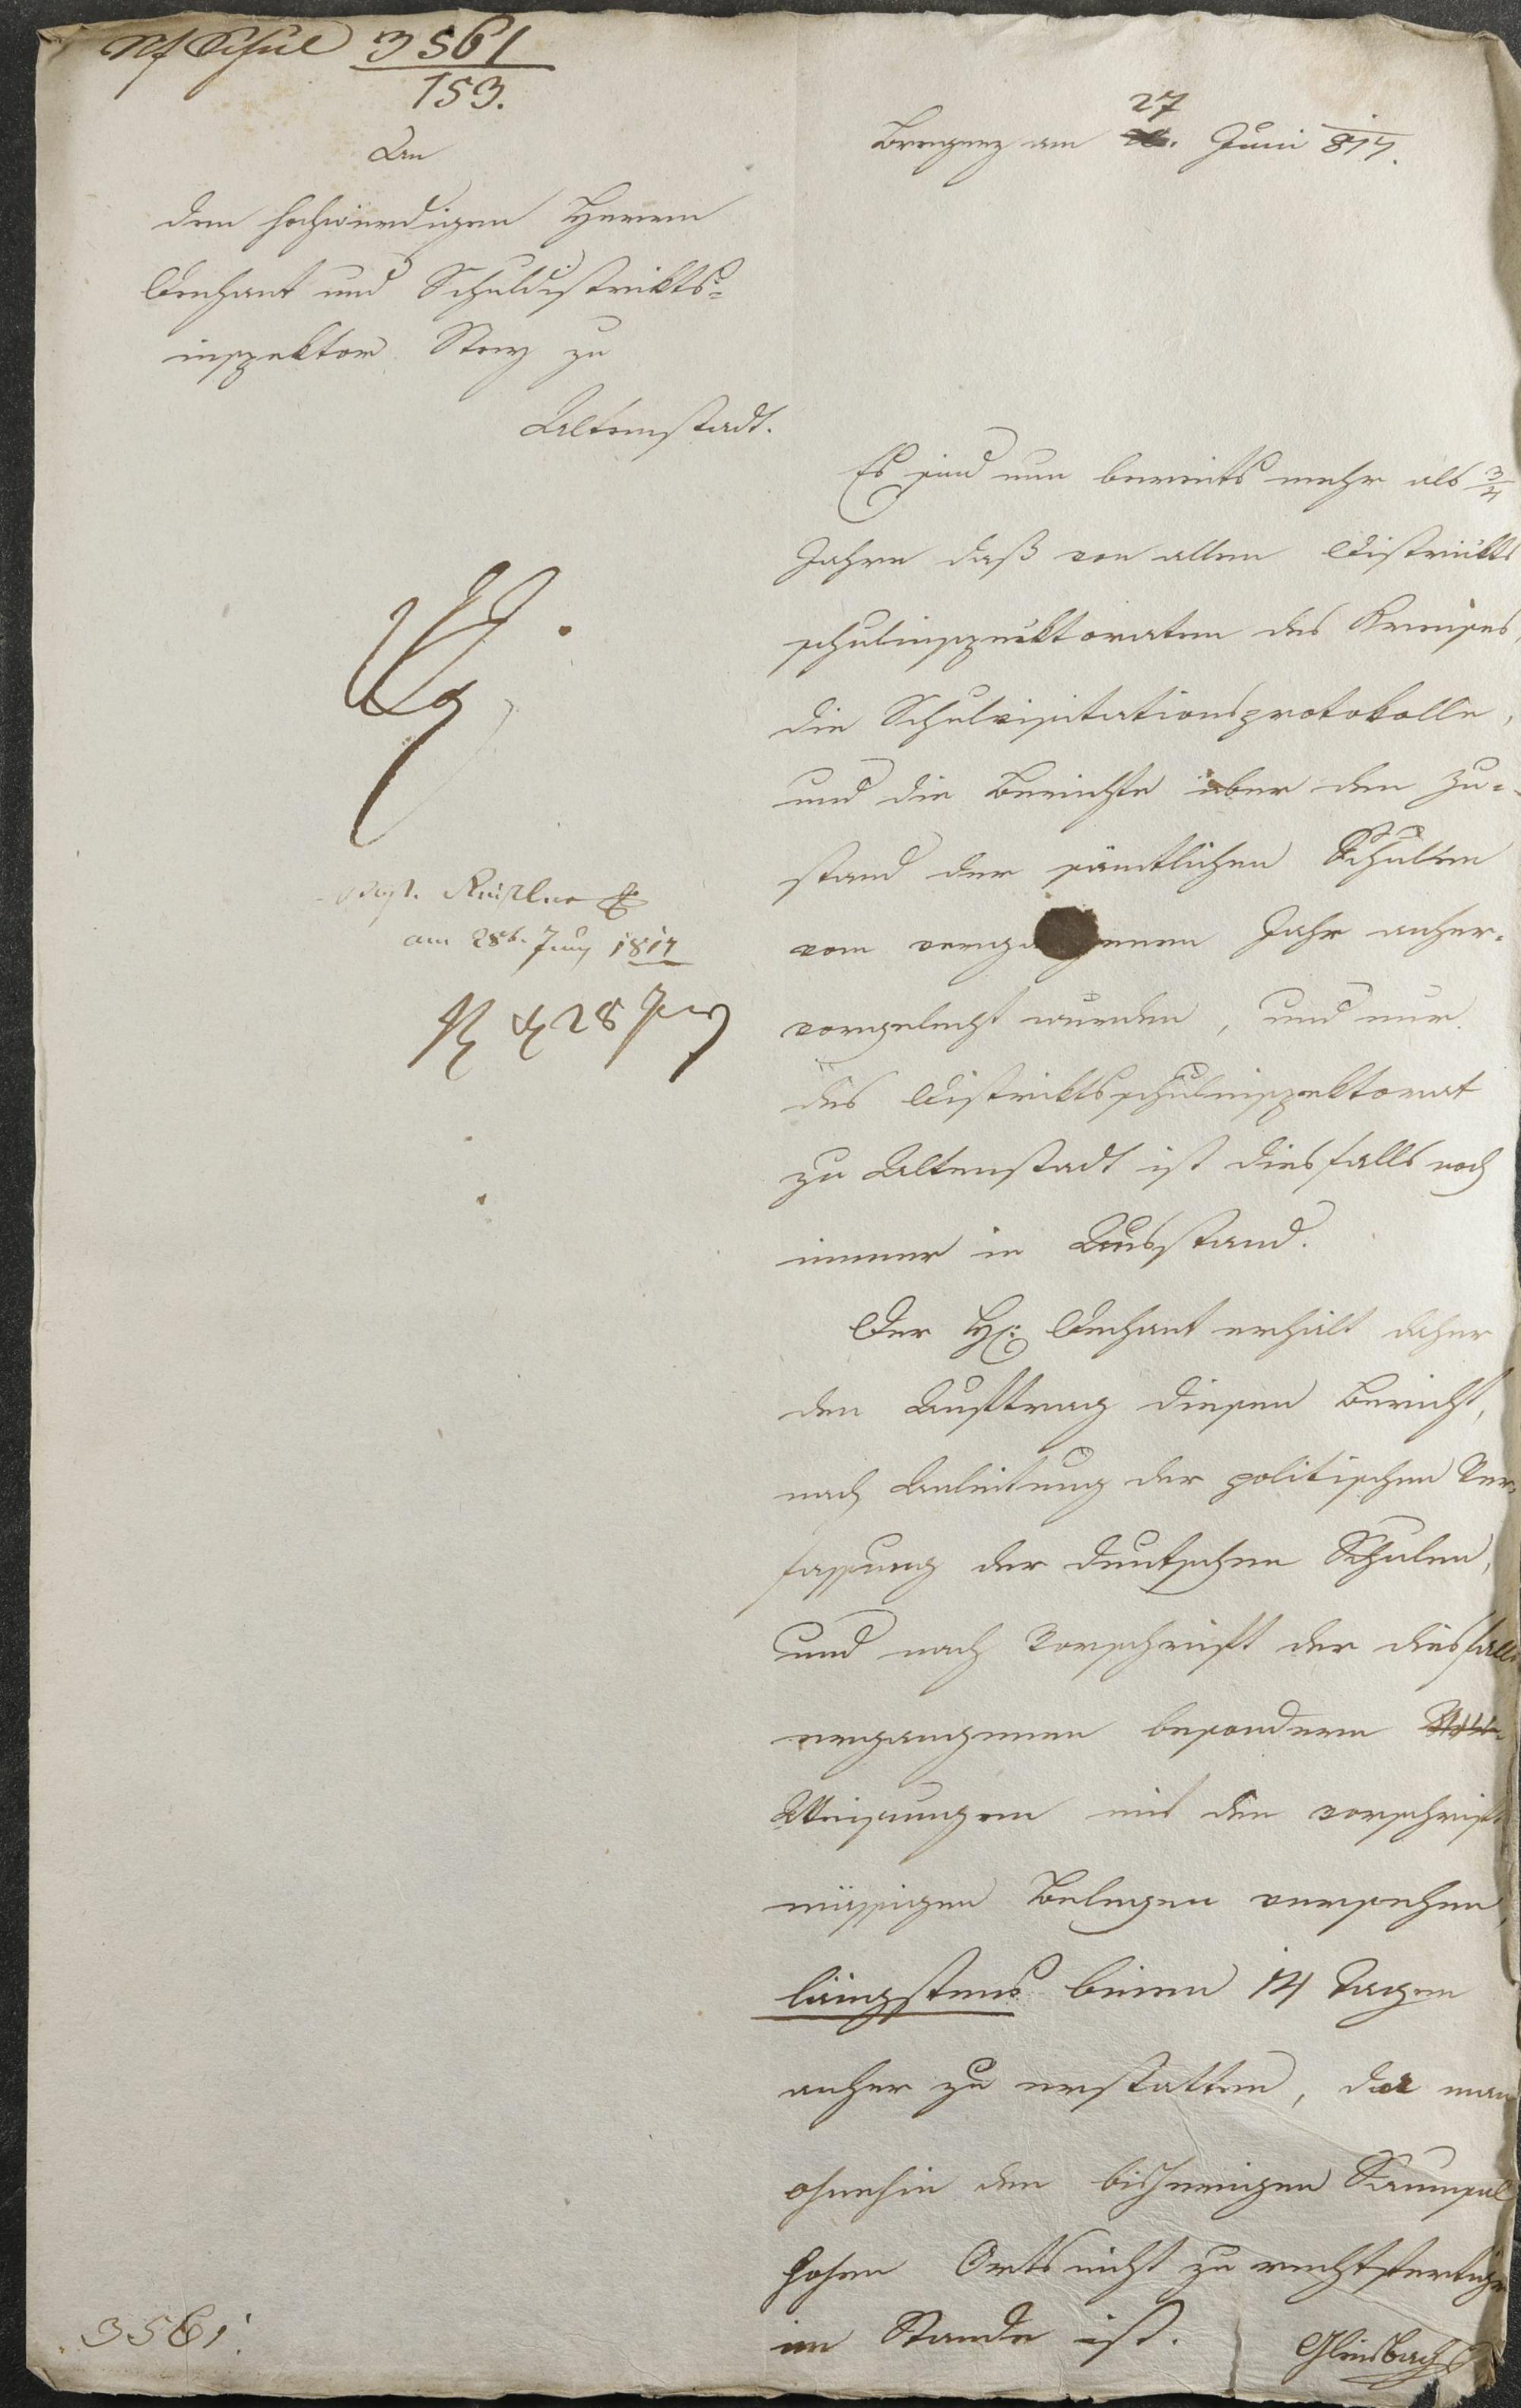 Schul 3561
153.
An
den hochwürdigen Herrn
Dechant und Schuldistrikts=
inspektor Stey zu
Altenstadt.
am 28t. Juny 1817
28 Juny
3561.
Bregenz am 27 Juni 817.
Es sind nun bereits mehr als 3/4
Jahre daß von allen Distrikts
schulinspektoraten des Kreises,
die Schulvisitationsprotokolle,
und die Berichte über den Zu=
stand der sämtlichen Schulen
vom vergangenen Jahr anher
vorgelegt wurden, und nur
das Distriktsschulinspektorat
zu Altenstadt ist diesfalls noch
immer in Ausstand.
Der H: Dechant erhält daher
den Auftrag diesen Bericht,
nach Anleitung der politischen Ver=
fassung der deutschen Schulen,
und nach Vorschrift der diesfalls
ergangenen besondern
Weisungen mit den vorschrift
mässigen Belegen versehen,
längstens binen 14 Tagen
anher zu erstatten, da man
ohnehin den bisherigen Saumsal
hohen Orts nicht zu rechtfertigen
im Stande ist.